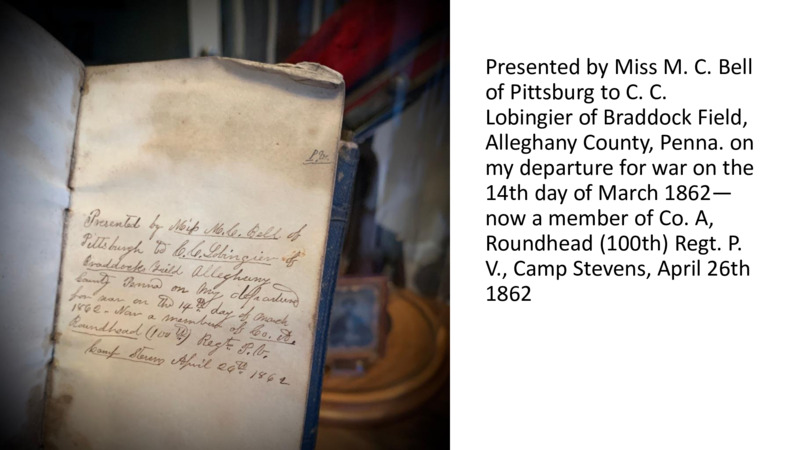 Presented by Miss M.C. Bell of
Pittsburgh to C.C. Lobingier of
Braddocks Field Allegheny
County Penna on my departure
for war on the 14th day of March
1862 - Now a member of Co. A.
Roundhead (100th) Regt. P.V.
Camp Stevens April 26th 1862
Presented by Miss M. C. Bell
of Pittsburg to C. C.
Lobingier of Braddock Field,
Alleghany County, Penna. on
my departure for war on the
14th day of March 1862—
now a member of Co. A,
Roundhead (100th) Regt. P.
V., Camp Stevens, April 26th
1862